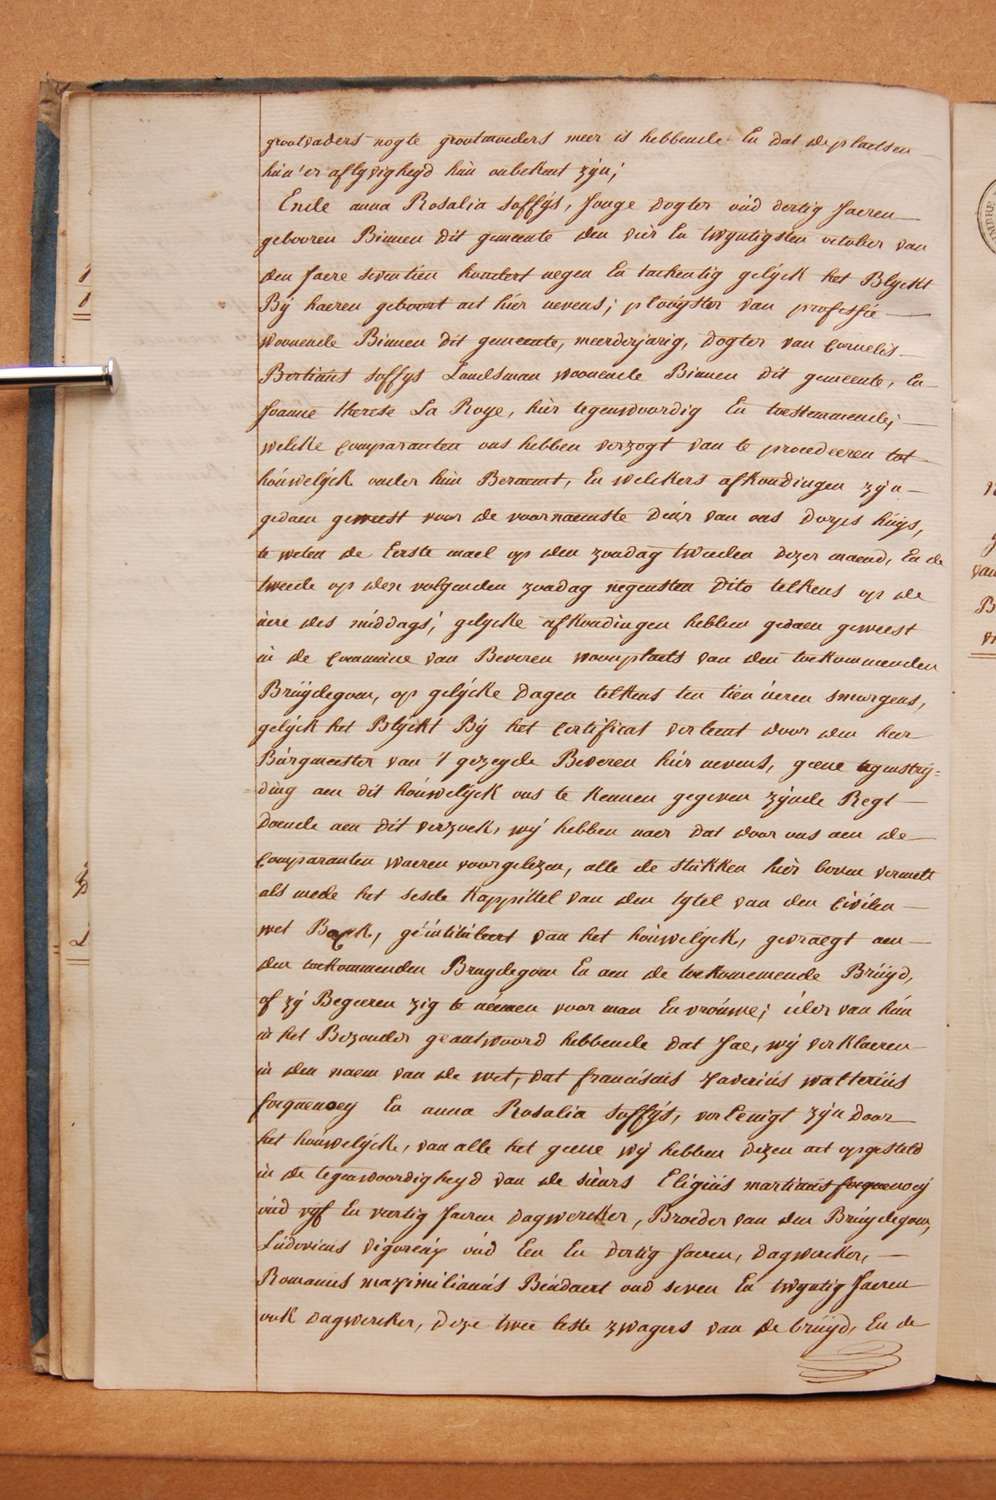 grootvaders nogte grootmoeders meer is hebbende En dat de plaetsen
hun'er aflyvigheyd hun onbekent zyn;
Ende anna Rosalia Soffÿs, Jonge dogter oud dertig Jaeren
gebooren Binnen dit gemeente den vier En twyntigsten october van
den Jaere seventien hondert negen En tachentig gelÿck het Blyckt
Bÿ haeren geboort act hier nevens; plooigster van professie
woonende Binnen dit gemeente, meerderjarig, Dogter van Cornelis
Bertinus Soffys Landsman woonende Binnen dit gemeente, En
Joanne therese La Roye, hier tegenwoordig En toestemmende;
welcke Comparanten ons hebben verzogt van te procedeeren tot
hoúwelÿck onder hun Beraemt, En welckers afkondingen zÿn
gedaen geweest voor de voornaemste deúr van ons dorps húÿs,
te weten de Eerste mael op den zondag tweeden dezer maend, En de
tweede op den volgenden zondag negensten dito telkens op de
úere des middags; gelycke afkondingen hebben gedaen geweest
in de Commúne van Beveren woonplaets van den toekommenden
Brúÿdegom, op gelÿcke dagen telkens ten tien úeren smorgens,
gelÿck het Blÿckt Bÿ het Certificat verleent door den heer
Búrgmeester van 't gezegde Beveren hier nevens, geene tegenstrÿ=
ding aen dit hoúwelÿck ons te kennen gegeven zÿnde Regt
Doende aen dit verzoek, wÿ hebben naer dat door ons aen de
Comparanten waeren voorgelezen, alle de stúkken hier boven vermelt
als mede het sesde Kappittel van den tytel van den Civilen
wet Boek, geïntituleert van het hoúwelÿck, gevraegt aen
den toekommenden Brugdegom En aen de toekomemende Brúÿd,
of zÿ Begeeren zig te néemen voor man En vroúwe; ieder van hún
in het Bezonder geantwoord hebbende dat Jae, wÿ verklaeren
in den naem van de wet, dat franciscus Xaverius walterius
forquenoey En anna Rosalia Soffÿs, vereenigt zÿn Door
het hoúwelÿck, van alle het geene wÿ hebben dezen act opgesteld
in de tegenwoordigheyd van de siéurs Eligiús martinus forquenoeÿ
oúd vÿf En veertig Jaeren dagwercker, Broeder van den Brúÿdegom,
Lúdovicus vigoreúx oúd Een En dertig Jaeren, dagwercker,
Romanus maximilianús Beúdaert oud seven En twyntig Jaeren
ook dagwercker, Deze twee leste zwagers van de brúÿd, En de